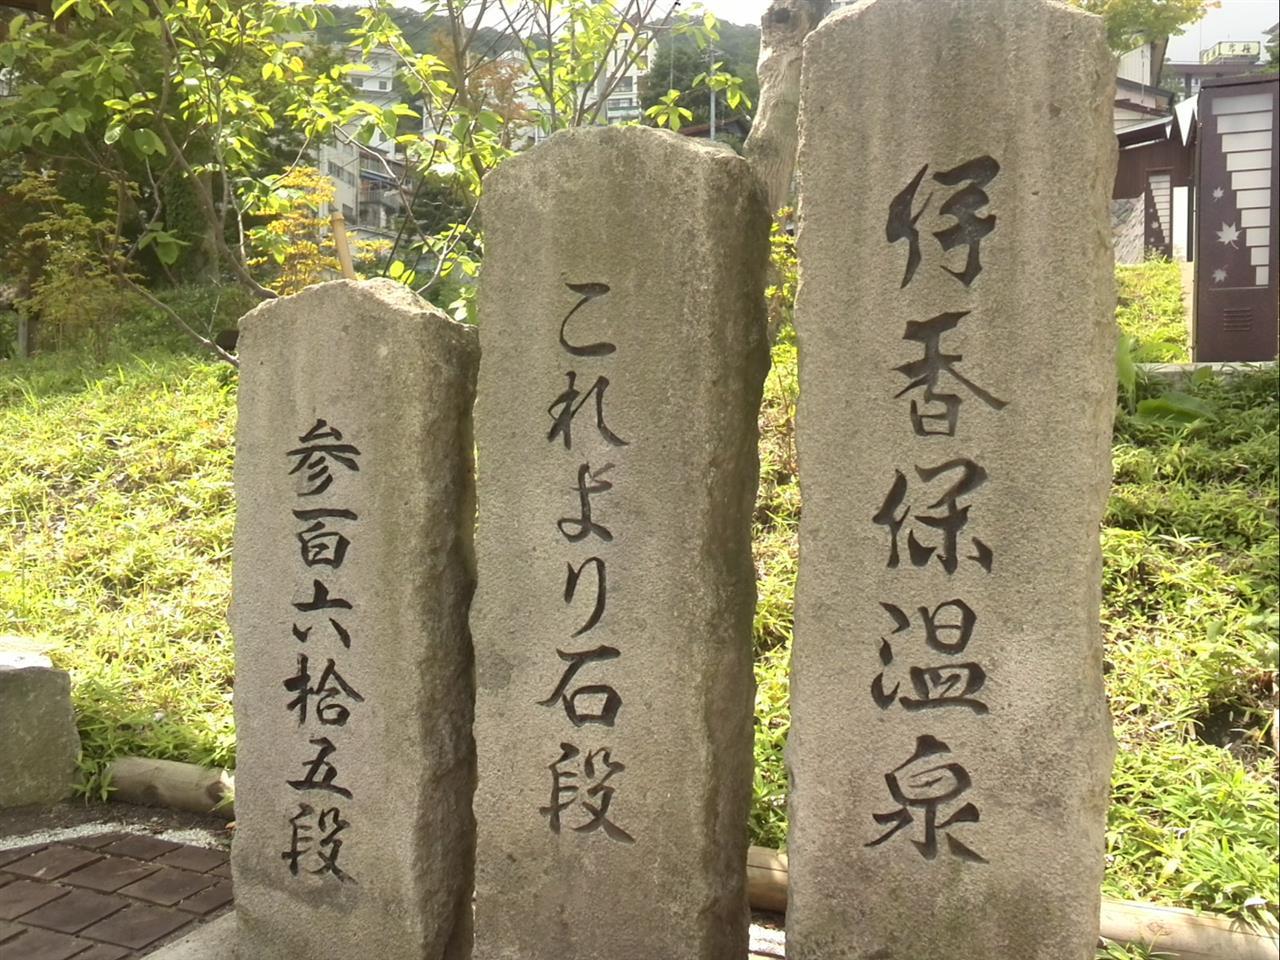 伊香保温泉
これより石段
参百六拾五段